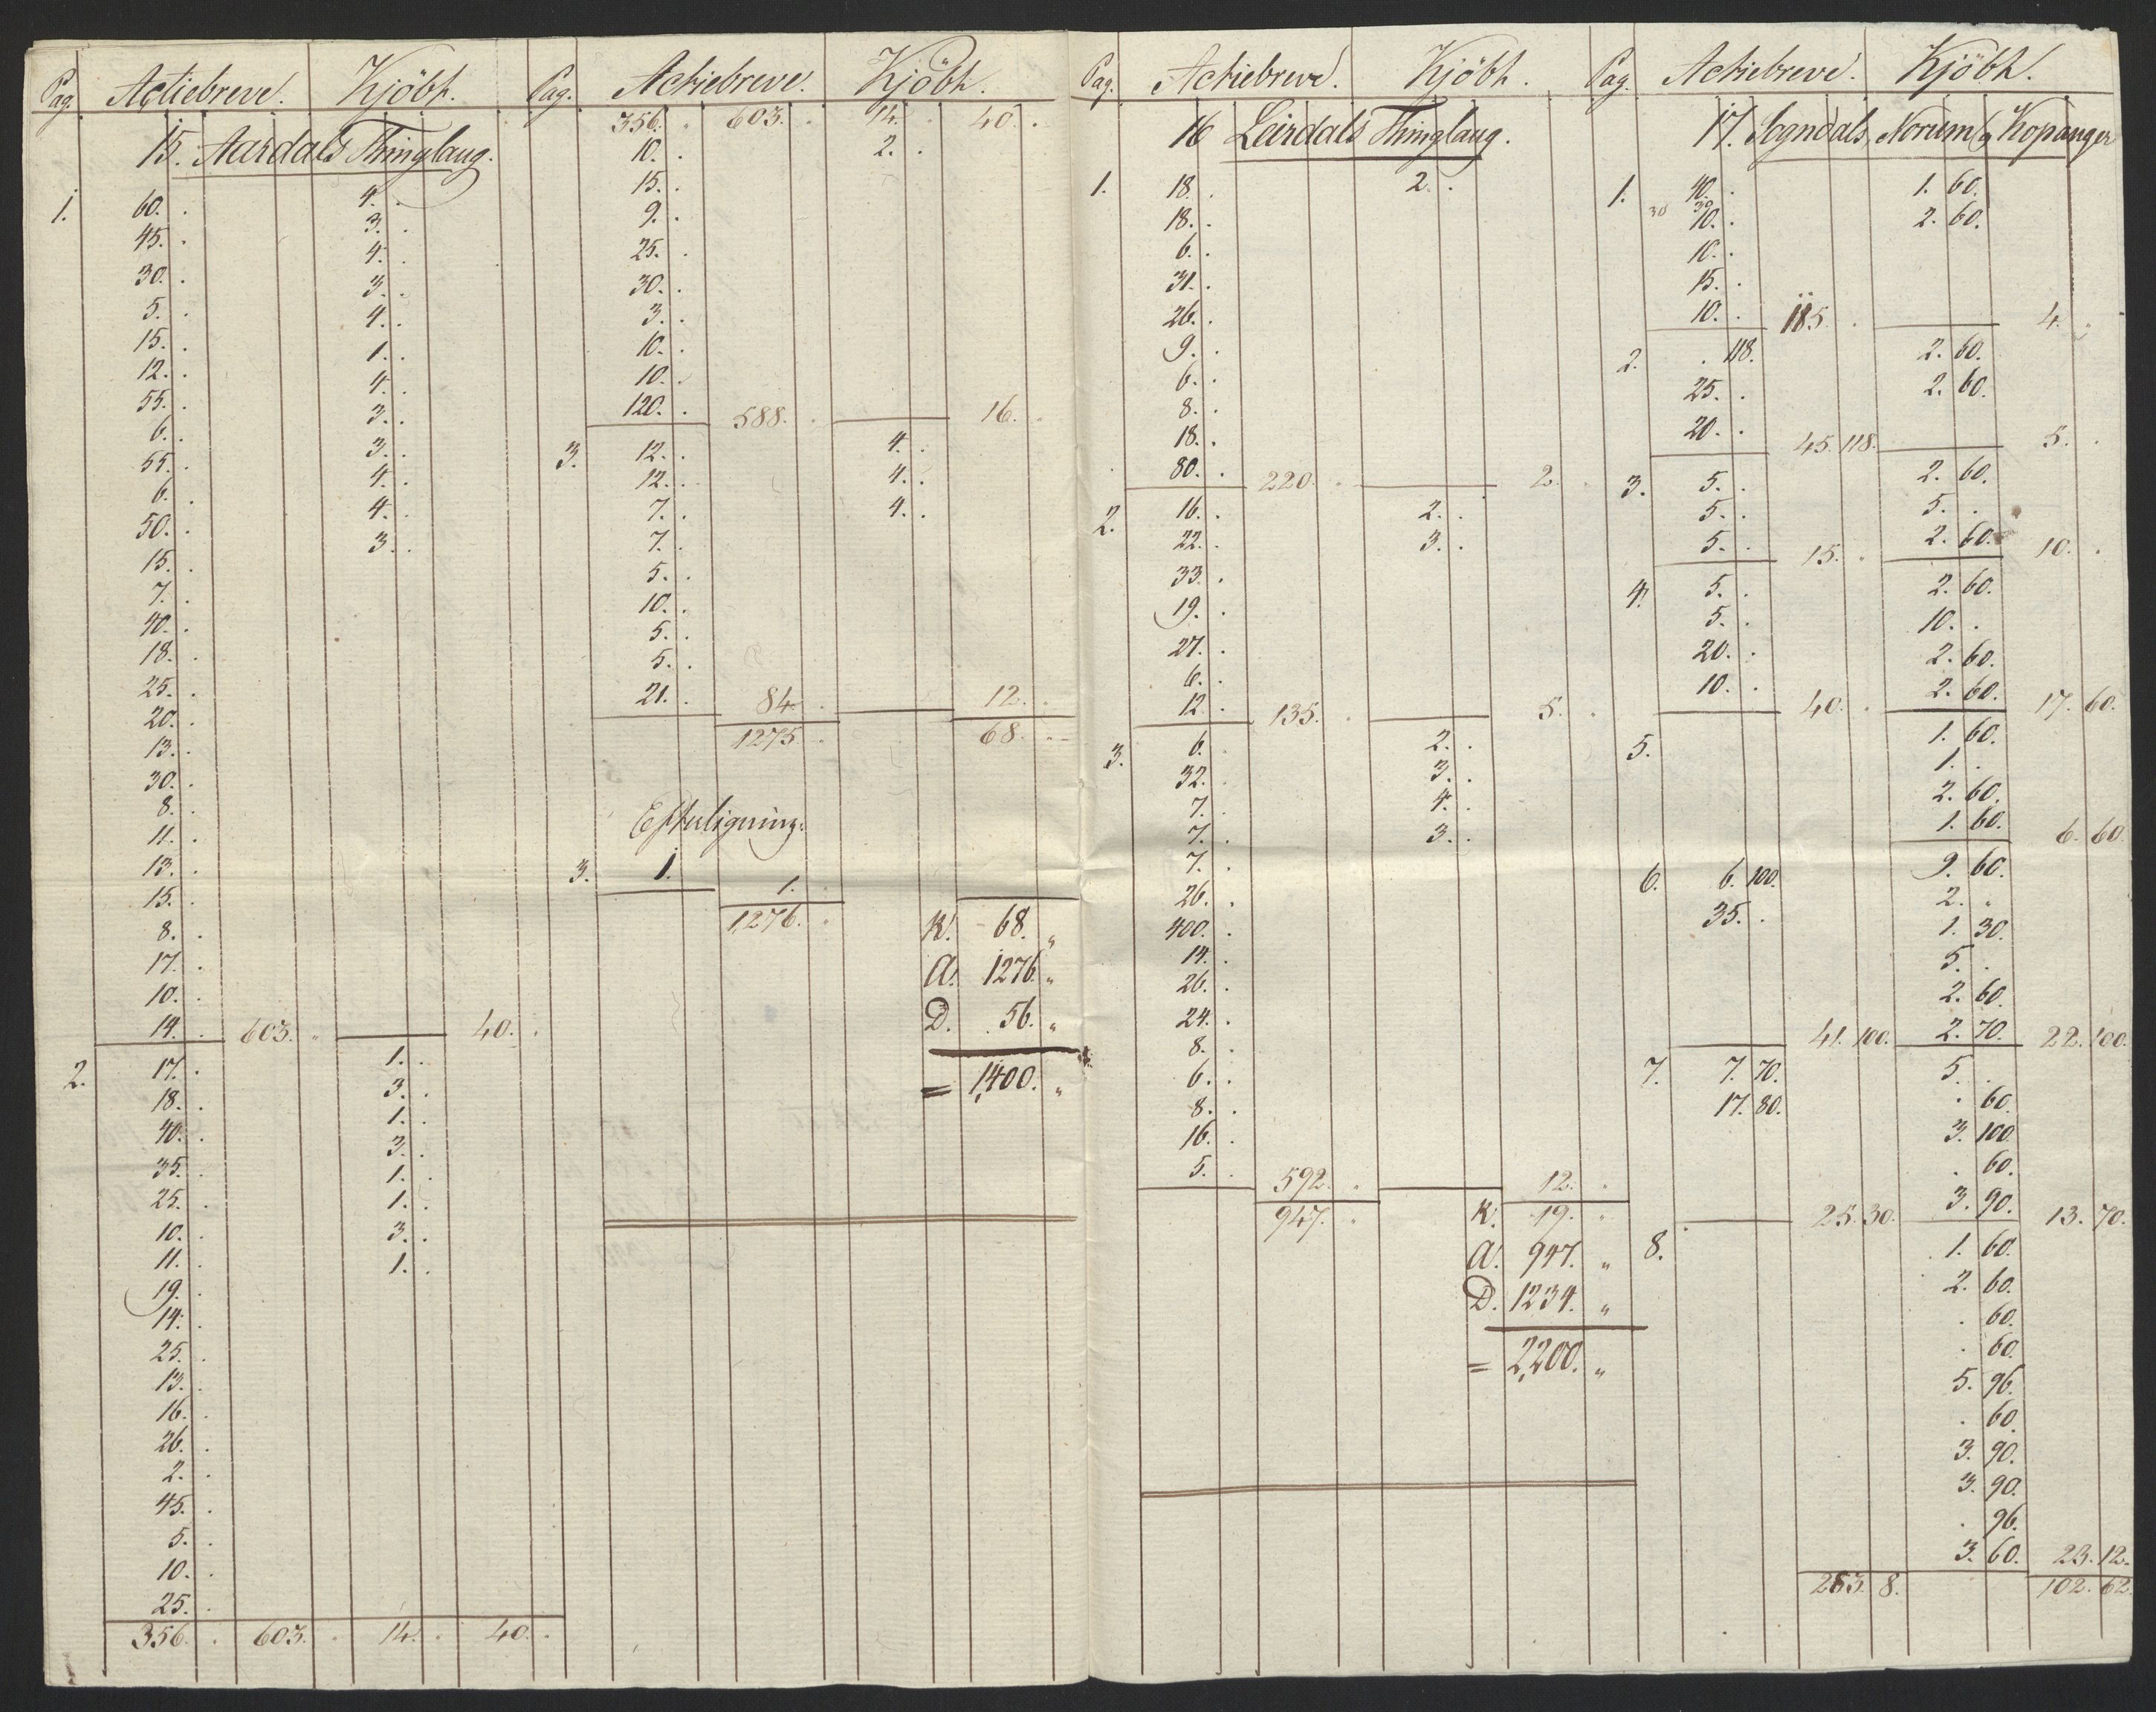 Pag. Actiebreve. Kjöbh.
15. Aardals Thinglaug.
1. 60. . 4. .
45. . 3. .
30. . 4. .
5. . 3. .
15. . 4. .
12. . 1. .
55. . 4. .
6. . 3. .
55. . 3. .
6. . 4. .
50. . 4. .
15. . 3. .
7. .
40. .
18. .
25. .
20. .
13. .
30. .
8. .
11. .
13. .
15. .
8. .
17. .
10. .
14. . 603. „ 40. .
2. 17. . 1. .
18. . 3. .
40. . 1. .
35. . 3. .
25. . 1. .
10. . 1. .
11. . 3. .
19. . 1. .
14. .
25. .
13. .
16. .
26. .
2. .
45. .
5. .
10. .
25. .
356. . 603. . 14. . 40. .
Pag. Actiebreve. Kjöbh.
356. . 603. . 14. . 40. .
10. . 2. .
15. .
9. .
25. .
30. .
3. .
10. .
10. .
120. . 588. . 16. .
3. 12. . 4. .
12. . 4. .
7. . 4. .
7. .
5. .
10. .
5. .
5. .
21. . 84. . 12. .
1275. . 68. .
Efterligning.
3. 1. 1. .
1276. . K. 68. „
A. 1276. „
D. 56. „
= 1,400. „
Pag. Actiebreve. Kjöbh.
16 Leirdals Thinglaug.
1. 18. . 2. .
18. .
6. .
31. .
26. .
9. .
6. .
8. .
18. .
80. . 220. . 2. .
2. 16. . 2. .
22. . 3. .
33. .
19. .
27. .
6. .
12. . 135. . 5. .
3. 6. . 2. .
32. . 3. .
7. . 4. .
7. . 3. .
7. .
26. .
400. .
14. .
26. .
24. .
8. .
6. .
8. .
16. .
5. . 592. „ 12. „
947. „ K. 19. „
A. 947. „
D. 1234. „
= 2,200. „
Pag. Actiebreve. Kjöbh.
17. Sogndals, Norum og Kopanger
1. 40. . 1. 60.
30 30
10. . 2. 60.
10. .
15. .
10. . 185. . 4. „
2. . 118. 2. 60.
25. . 2. 60.
20. . 45. 118. 5. .
3. 5. . 2. 60.
5. . 5. .
5. . 15. . 2. 60. 10. .
4. 5. . 2. 60.
5. . 10. .
20. . 2. 60.
10. . 40. . 2. 60. 17. 60.
5. 1. 60.
1. .
2. 60.
1. 60. 6. 60.
6. 6. 100. 9. 60.
35. . 2. „
1. 30.
5. .
2. 60.
41. 100. 2. 70. 22. 100.
7. 7. 70. 5. .
17. 80. . 60.
3. 100.
. 60.
25. 30. 3. 90. 13. 70.
8. 1. 60.
2. 60.
. 60.
. 60.
5. 96.
. 60.
3. 90.
3. 90.
. 96.
3. 60. 23. 12.
253. 8. 102. 62.